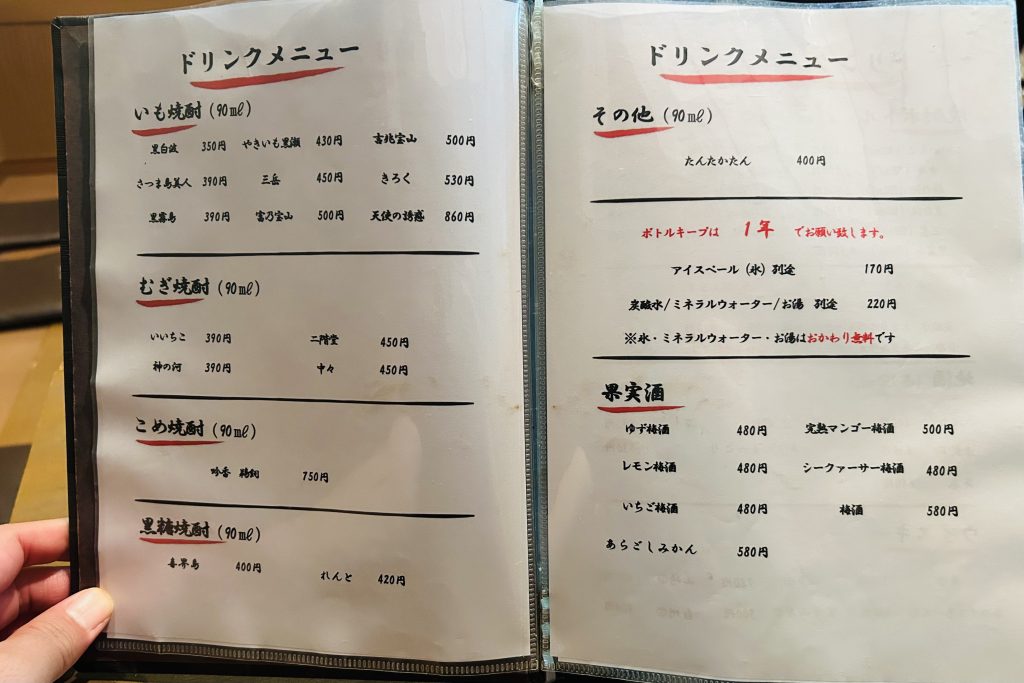 ドリンクメニュー
いも焼酎(90㎖)
黒白波 350円 やきいも黒瀬 430円 吉兆宝山 500円
さつま島美人 390円 三岳 450円 きろく 530円
黒霧島 390円 富乃宝山 500円 天使の誘惑 860円
むぎ焼酎(90㎖)
いいちこ 390円 二階堂 450円
神の河 390円 中々 450円
こめ焼酎(90㎖)
吟香 鳥飼 750円
黒糖焼酎(90㎖)
喜界島 400円 れんと 420円
ドリンクメニュー
その他(90㎖)
たんたかたん 400円
ボトルキープは 1年 でお願い致します。
アイスペール(氷)別途 170円
炭酸水/ミネラルウォーター/お湯 別途 220円
※氷・ミネラルウォーター・お湯はおかわり無料です
果実酒
ゆず梅酒 480円 完熟マンゴー梅酒 500円
レモン梅酒 480円 シークァーサー梅酒 480円
いちご梅酒 480円 梅酒 580円
あらごしみかん 580円